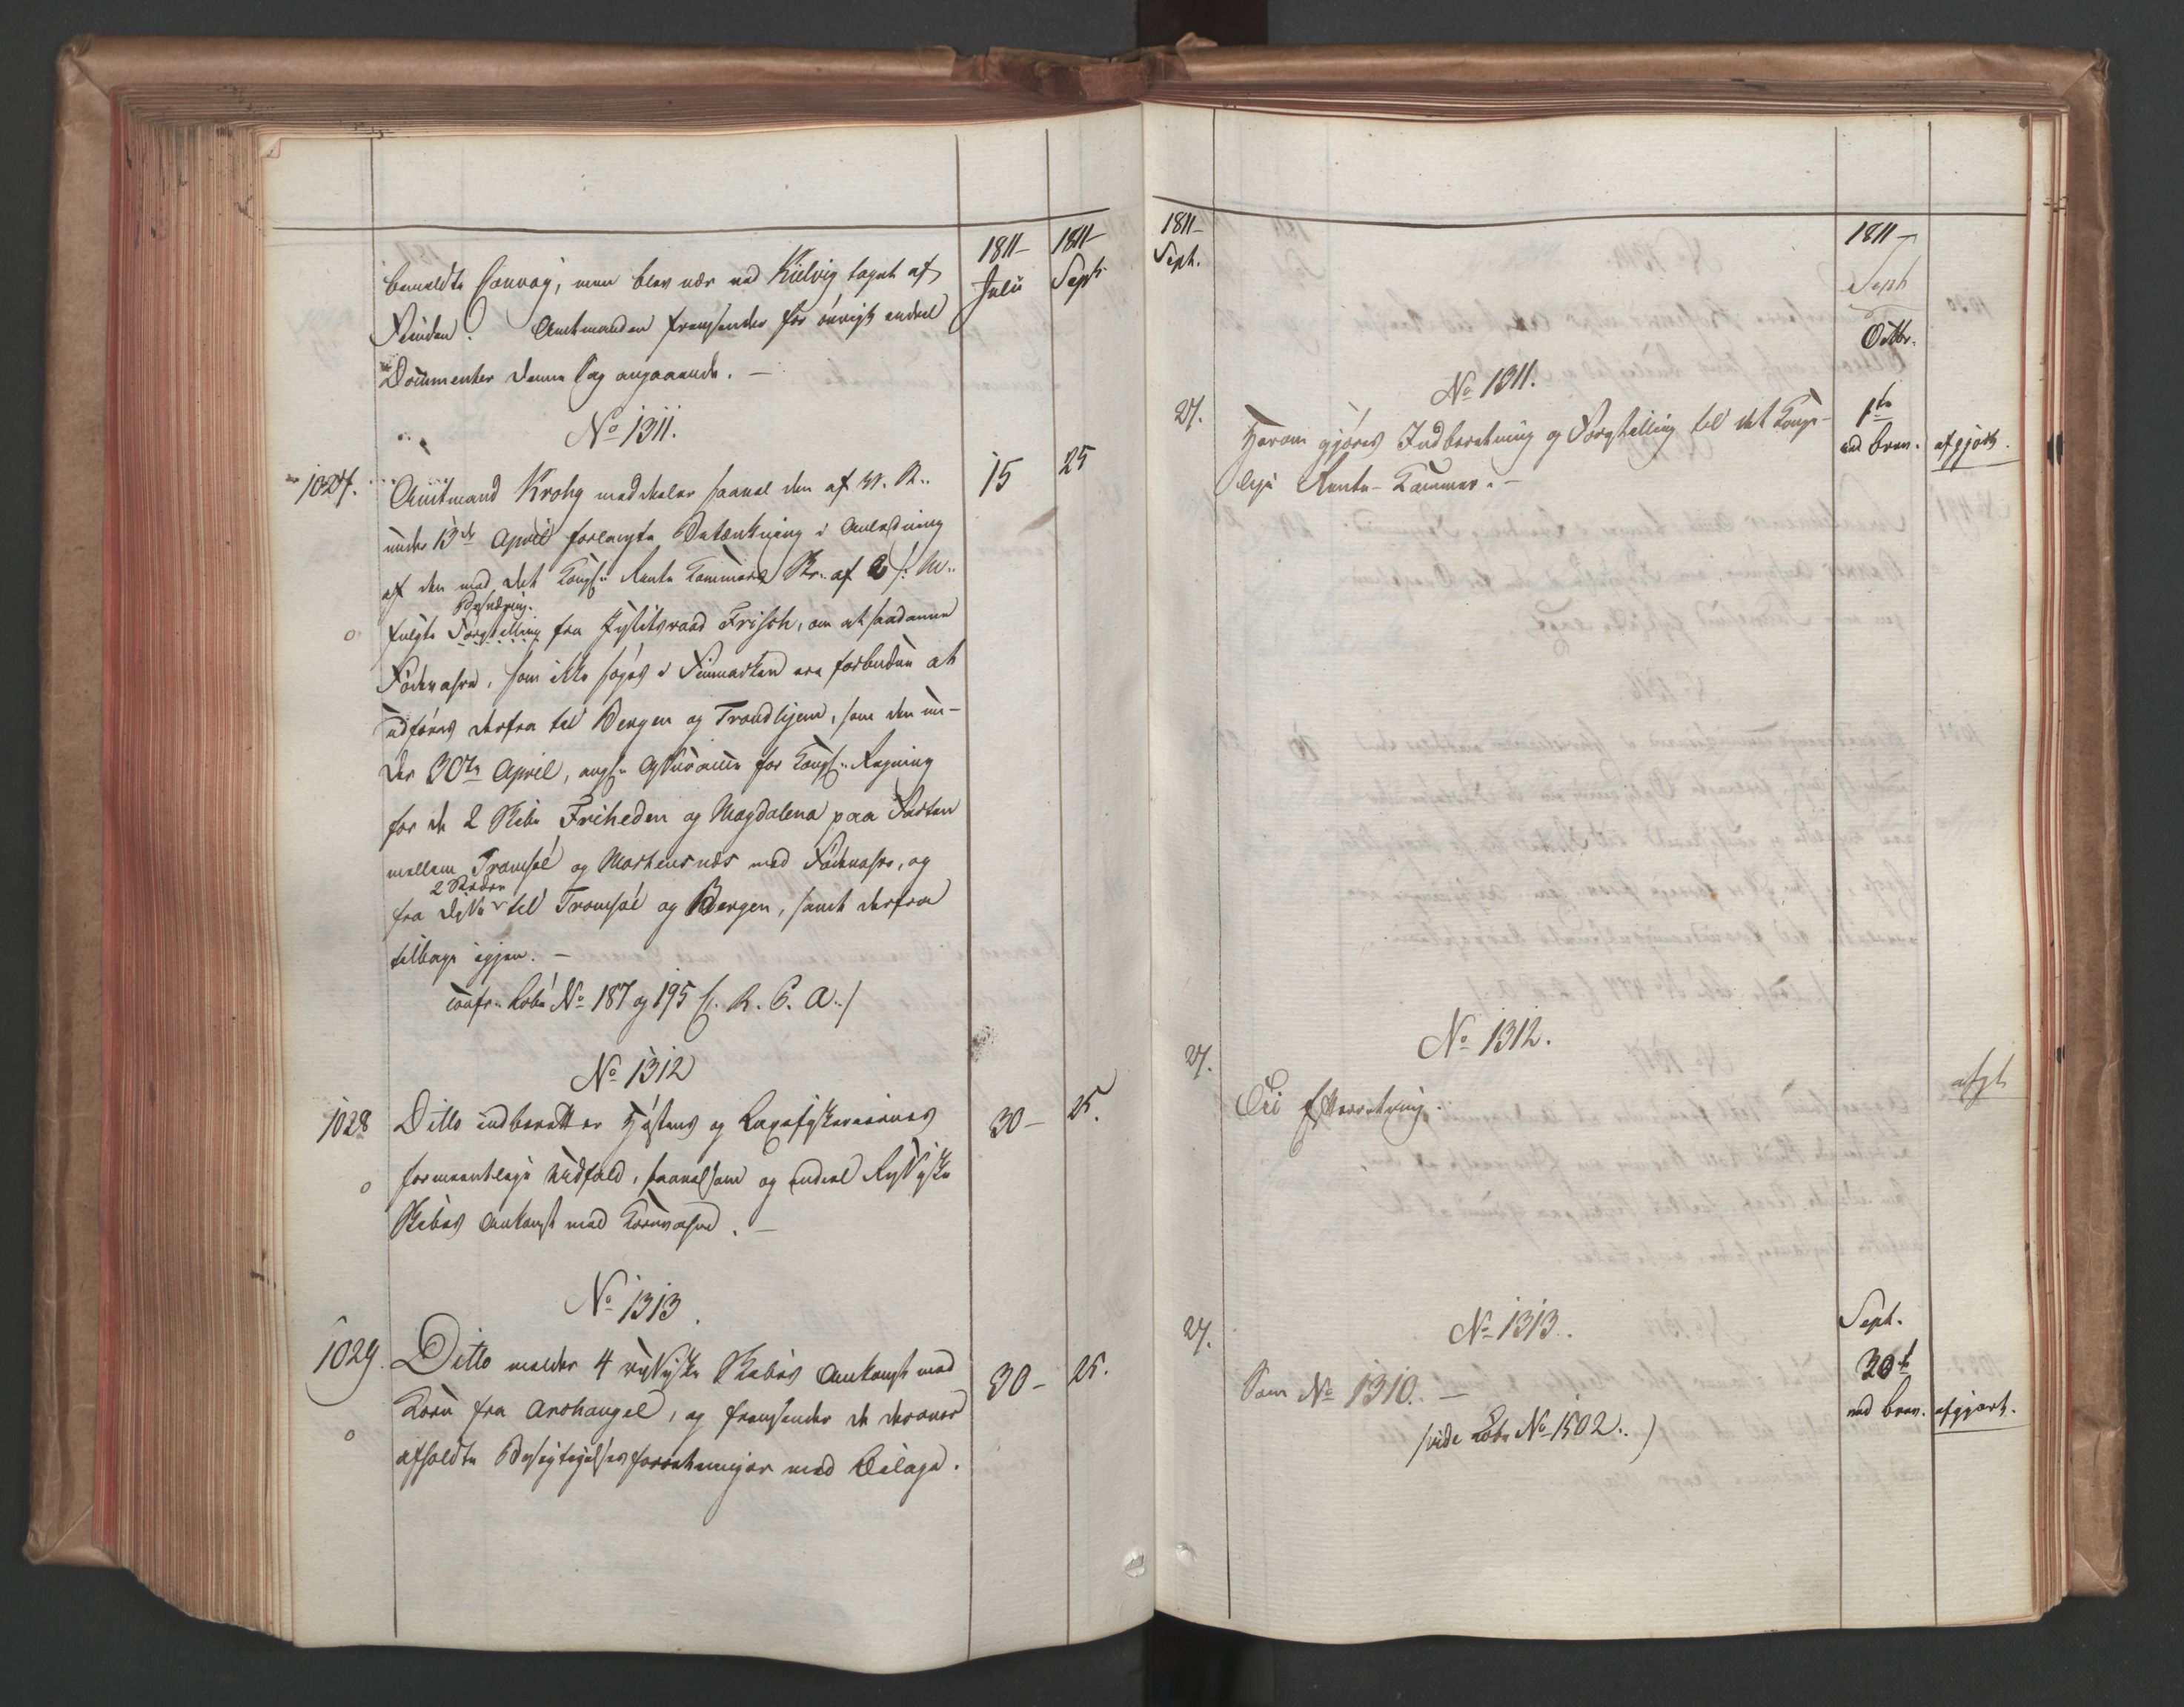 1811-
Julii
1811-
Sept
bemeldte Convoy, men blev nær ved Kielvig tagen af
Fienden. Amtmanden fremsender for øvrigt endeel
Documenter denne Sag angaaende. -
No 1311.
1027.
Amtmand Krohg meddeler saavel den af
15
25
under 13de April forlangte Betænkning i Anledning
af den med det Kongl. Rente Kammers Skr. af
Besværing.
fulgte Forestilling fra Justitsraad Frisch, om at saadanne
Fødevahre, som ikke søges i Finmarken ere forbudne at
udføres derfra til Bergen og Trondhjem, som den un-
der 30te April, angl. Assurance for Kongl. Regning
for de 2 Skibe Friheden og Magdalena paa Farten
mellem Tromsøe og Mortensnæs med Fødevahre, og
2 Steder
fra disse til Tromsøe og Bergen, samt derfra
tilbage igjen. -
confr. Lobe No 187 og 195 /: R. C. A. /
No 1312
1028
Ditto indberetter Høstens og Laxefiskeriernes
30-
25.
formeentlige Udfald, saavelsom og endeel Russiske
Skibes Ankomst med Kornvahre. -
No 1313.
1029.
Ditto melder 4 russiske Skibes Ankomst med
30-
25.
Korn fra Archangel, og fremsender de derover
afholdte Besigtigelsesforretninger med Bilage.
1811-
Sept.
1811-
Sept
Octbr.
No 1311.
27.
Herom gjøres Indberetning og Forestilling til det Konge-
1te
ved Brev.
afgjort.
lige Rente-Kammer. -
No 1312.
27.
Til Efterretning.
afgt
No 1313.
27.
Sept.
Som No 1310. -
30te
ved Brev.
afgjort.
/vide Lobe No 1502. /